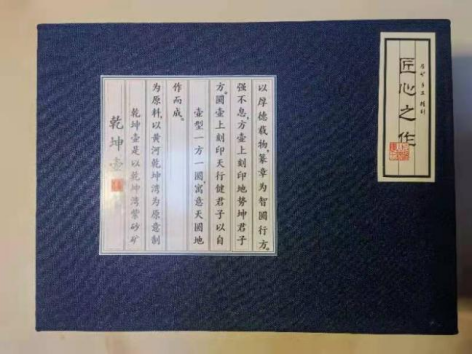 乾坤壶
乾坤壶是以乾坤湾紫砂矿
为原料,以黄河乾坤湾为原意制
作而成。
壶型一方一圆寓意天圆地
方。圆壶上刻印天行健君子以自
强不息,方壶上刻印地势坤君子
以厚德载物,篆章为智圆行方。
匠心之作